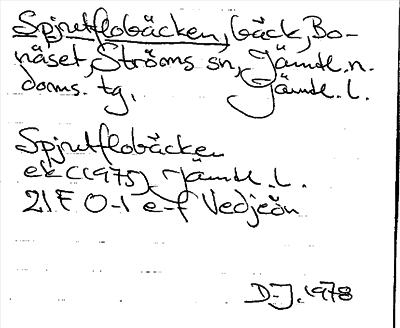 Spjutflobäcken, bäck, Bo-
näset, Ströms sn, Jämtl. n.
doms. tg. Jämtl. l.
Spjutflobäcken
ek (1975) Jämtl. l.
21F 0-1 e-f Vedjeön
D-J. 1978